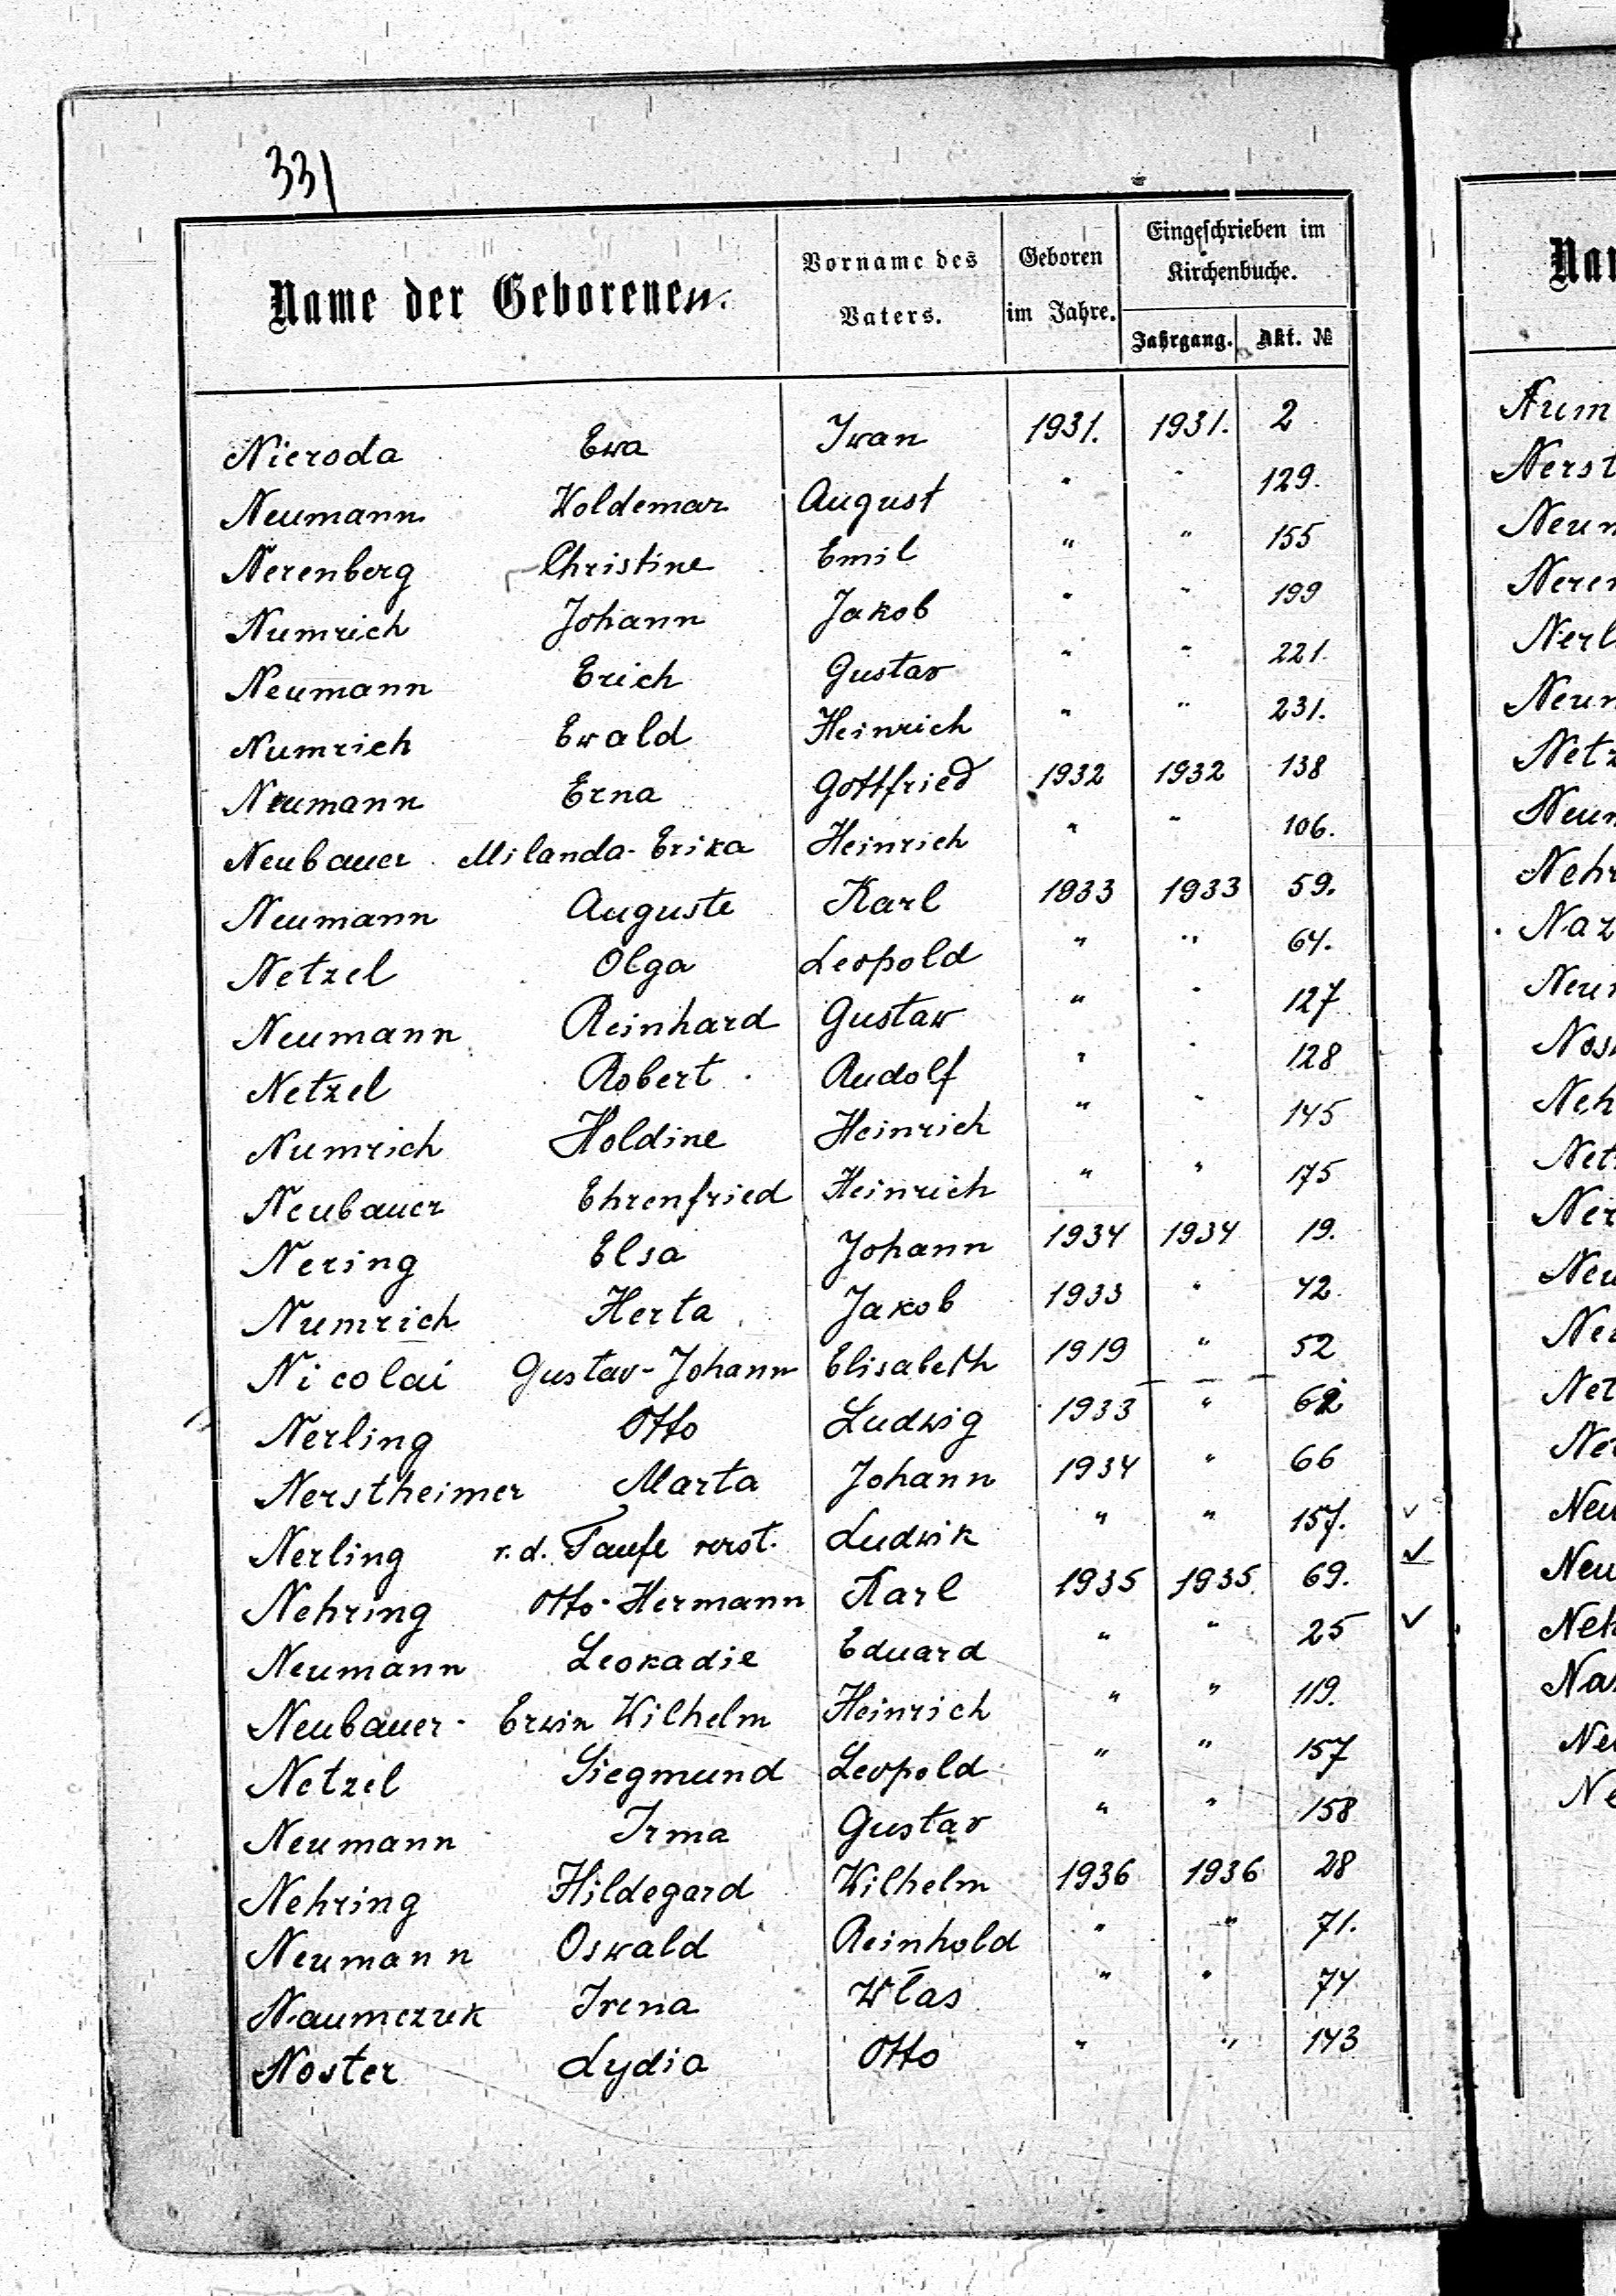 331
Name der Geborenen.
Vorname des Vaters.
Geboren im Jahre.
Eingeschrieben im Kirchenbuche.
Jahrgang. Akt. №
Nieroda Ewa Iwan 1931. 1931. 2
Neumann Woldemar August " " 129.
Nerenberg Christine Emil " " 155
Numrich Johann Jakob " " 199
Neumann Erich Gustav " " 221.
Numrich Ewald Heinrich " " 231.
Neumann Erna Gottfried 1932 1932 138
Neubauer Milanda-Erika Heinrich " " 106.
Neumann Auguste Karl 1933 1933 59.
Netzel Olga Leopold " " 64.
Neumann Reinhard Gustaw " " 127
Netzel Robert Rudolf " " 128
Numrich Holdine Heinrich " " 145
Neubauer Ehrenfried Heinrich " " 175
Nering Elsa Johann 1934 1934 19.
Numrich Herta Jakob 1933 " 42.
Nicolai Gustav-Johann Elisabeth 1919 " 52
Nerling Otto Ludwig 1933 " 62
Nerstheimer Marta Johann 1934 " 66
Nerling v. d. Taufe verst. Ludwik " " 157.
Nehring Otto-Hermann Karl 1935 1935. 69.
Neumann Leokadie Eduard " " 25
Neubauer Erwin Wilhelm Heinrich " " 119.
Netzel Siegmund Leopold " " 157
Neumann Irma Gustav " " 158
Nehring Hildegard Wilhelm 1936 1936 28
Neumann Oswald Reinhold " " 71.
Naumczuk Irena Włas " " 74
Noster Lydia Otto " " 143